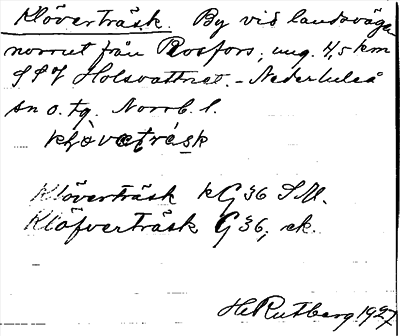 Klöverträsk. By vid landsvägen
norrut från Rosfors, ung. 4,5 km
SSV Holsvattnet. - Nederluleå
sn o. tg. Norrb. l.
Klöverträsk kG 36 SM.
Klöfverträsk G 36, ek.
H Rutberg 1927